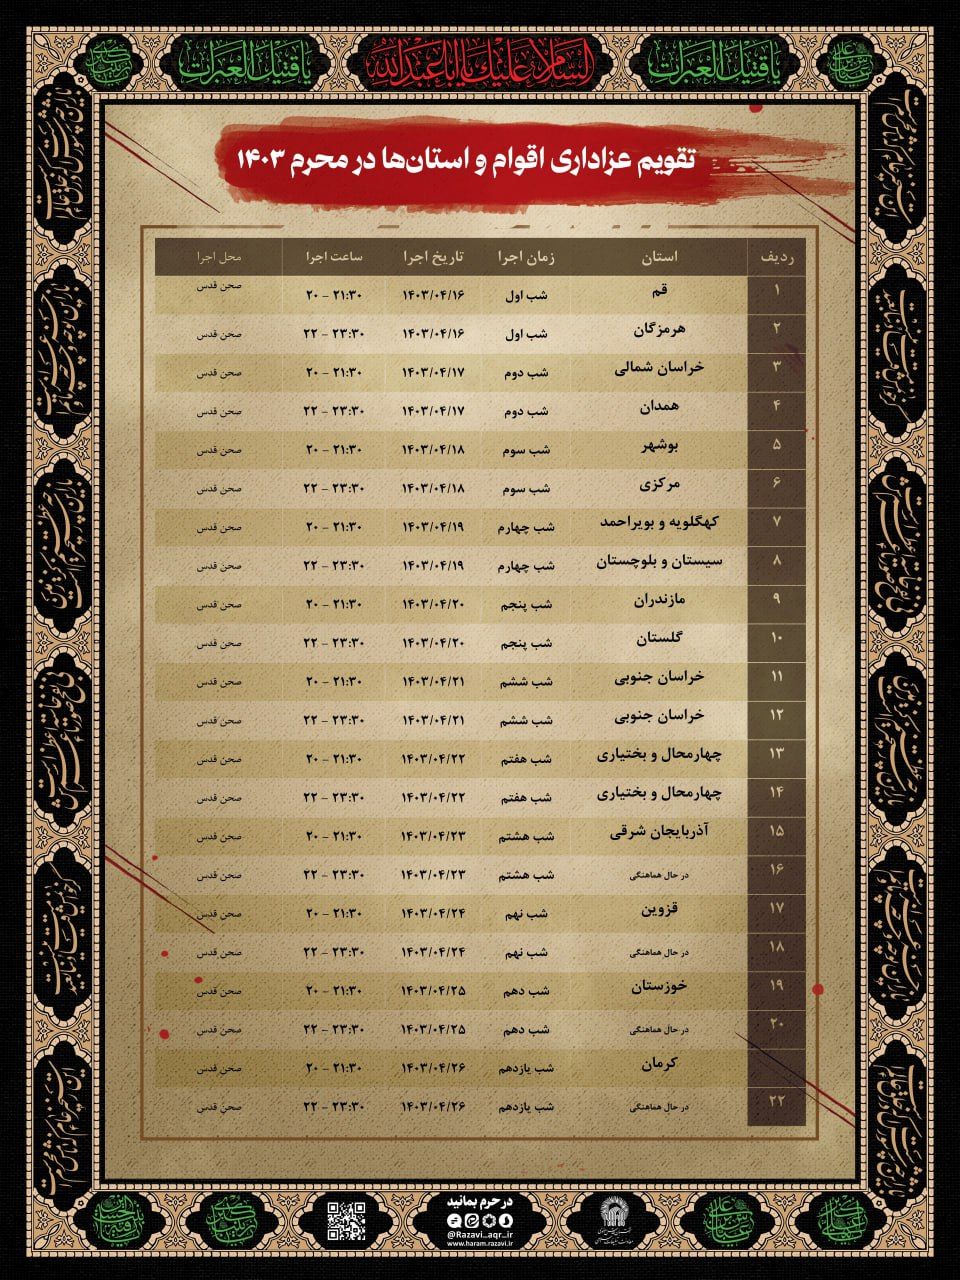 یا قتیل العبرات
السلام علیک یا اباعبدالله
یا قتیل العبرات
تقویم عزاداری اقوام و استان‌ها در محرم ۱۴۰۳
ردیف استان زمان اجرا تاریخ اجرا ساعت اجرا محل اجرا
۱ قم شب اول ۱۴۰۳/۰۴/۱۶ ۲۰ - ۲۱:۳۰ صحن قدس
۲ هرمزگان شب اول ۱۴۰۳/۰۴/۱۶ ۲۲ - ۲۳:۳۰ صحن قدس
۳ خراسان شمالی شب دوم ۱۴۰۳/۰۴/۱۷ ۲۰ - ۲۱:۳۰ صحن قدس
۴ همدان شب دوم ۱۴۰۳/۰۴/۱۷ ۲۲ - ۲۳:۳۰ صحن قدس
۵ بوشهر شب سوم ۱۴۰۳/۰۴/۱۸ ۲۰ - ۲۱:۳۰ صحن قدس
۶ مرکزی شب سوم ۱۴۰۳/۰۴/۱۸ ۲۲ - ۲۳:۳۰ صحن قدس
۷ کهگلویه و بویراحمد شب چهارم ۱۴۰۳/۰۴/۱۹ ۲۰ - ۲۱:۳۰ صحن قدس
۸ سیستان و بلوچستان شب چهارم ۱۴۰۳/۰۴/۱۹ ۲۲ - ۲۳:۳۰ صحن قدس
۹ مازندران شب پنجم ۱۴۰۳/۰۴/۲۰ ۲۰ - ۲۱:۳۰ صحن قدس
۱۰ گلستان شب پنجم ۱۴۰۳/۰۴/۲۰ ۲۲ - ۲۳:۳۰ صحن قدس
۱۱ خراسان جنوبی شب ششم ۱۴۰۳/۰۴/۲۱ ۲۰ - ۲۱:۳۰ صحن قدس
۱۲ خراسان جنوبی شب ششم ۱۴۰۳/۰۴/۲۱ ۲۲ - ۲۳:۳۰ صحن قدس
۱۳ چهارمحال و بختیاری شب هفتم ۱۴۰۳/۰۴/۲۲ ۲۰ - ۲۱:۳۰ صحن قدس
۱۴ چهارمحال و بختیاری شب هفتم ۱۴۰۳/۰۴/۲۲ ۲۲ - ۲۳:۳۰ صحن قدس
۱۵ آذربایجان شرقی شب هشتم ۱۴۰۳/۰۴/۲۳ ۲۰ - ۲۱:۳۰ صحن قدس
۱۶ در حال هماهنگی شب هشتم ۱۴۰۳/۰۴/۲۳ ۲۲ - ۲۳:۳۰ صحن قدس
۱۷ قزوین شب نهم ۱۴۰۳/۰۴/۲۴ ۲۰ - ۲۱:۳۰ صحن قدس
۱۸ در حال هماهنگی شب نهم ۱۴۰۳/۰۴/۲۴ ۲۲ - ۲۳:۳۰ صحن قدس
۱۹ خوزستان شب دهم ۱۴۰۳/۰۴/۲۵ ۲۰ - ۲۱:۳۰ صحن قدس
۲۰ در حال هماهنگی شب دهم ۱۴۰۳/۰۴/۲۵ ۲۲ - ۲۳:۳۰ صحن قدس
کرمان شب یازدهم ۱۴۰۳/۰۴/۲۶ ۲۰ - ۲۱:۳۰ صحن قدس
۲۲ در حال هماهنگی شب یازدهم ۱۴۰۳/۰۴/۲۶ ۲۲ - ۲۳:۳۰ صحن قدس
در حرم بمانید
@Razavi_aqr_ir
www.haram.razavi.ir